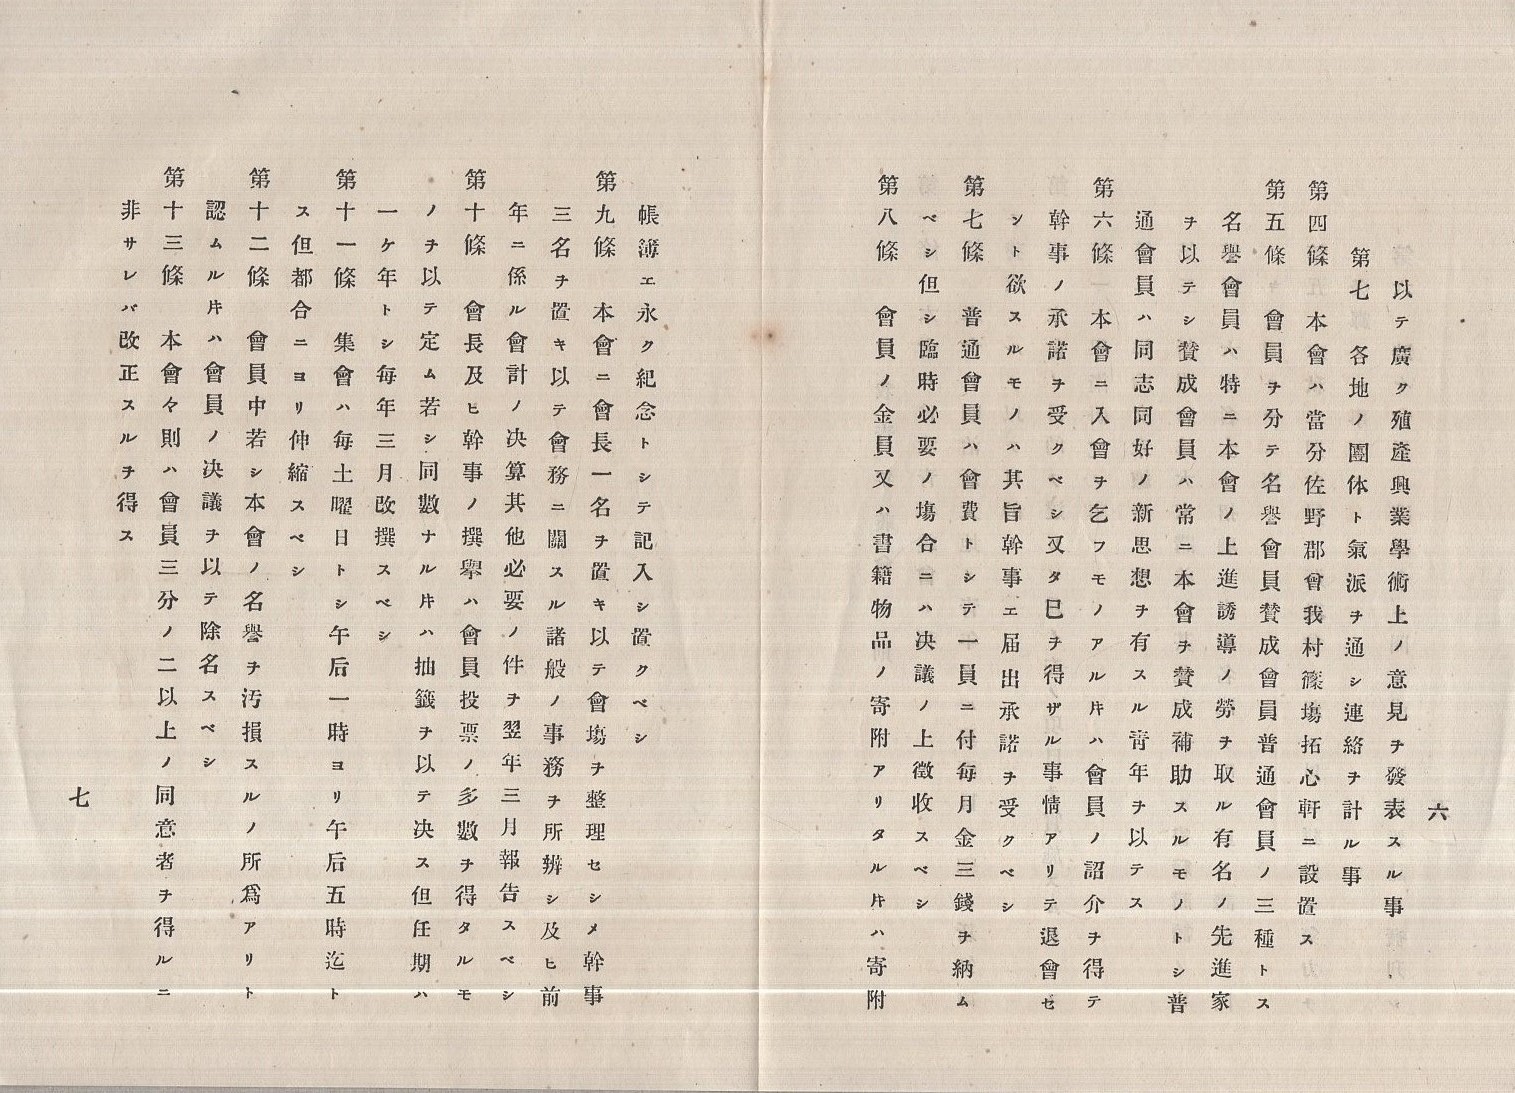 六
以テ廣ク殖產興業學術上ノ意見ヲ發表スル事
第七 各地ノ團体ト氣派ヲ通シ連絡ヲ計ル事
第四條 本會ハ當分佐野郡會我村篠塲拓心軒ニ設置ス
第五條 會員ヲ分テ名譽會員賛成會員普通會員ノ三種トス
名譽會員ハ特ニ本會ノ上進誘導ノ勞ヲ取ル有名ノ先進家
ヲ以テシ賛成會員ハ常ニ本會ヲ賛成補助スルモノトシ普
通會員ハ同志同好ノ新思想ヲ有スル靑年ヲ以テス
第六條 本會ニ入會ヲ乞フモノアル片ハ會員ノ詔介ヲ得テ
幹事ノ承諾ヲ受クベシ又タ巳ヲ得ザル事情アリテ退會セ
シト欲スルモノハ其旨幹事エ届出承諾ヲ受クベシ
第七條 普通會員ハ會費トシテ一員ニ付每月金三錢ヲ納ム
ベシ但シ臨時必要ノ塲合ニハ决議ノ上徵收スベシ
第八條 會員ノ金員又ハ書籍物品ノ寄附アリタル片ハ寄附
帳簿エ永ク紀念トシテ記入シ置クベシ
第九條 本會ニ會長一名ヲ置キ以テ會塲ヲ整理セシメ幹事
三名ヲ置キ以テ會務ニ關スル諸般ノ事務ヲ所辨シ及ヒ前
年ニ係ル會計ノ决算其他必要ノ件ヲ翌年三月報告スベシ
第十條 會長及ヒ幹事ノ撰擧ハ會員投票ノ多數ヲ得タルモ
ノヲ以テ定ム若シ同數ナル片ハ抽籤ヲ以テ决ス但任期ハ
一ケ年トシ每年三月改撰スベシ
第十一條 集會ハ每土曜日トシ午后一時ヨリ午后五時迄ト
ス但都合ニヨリ伸縮スベシ
第十二條 會員中若シ本會ノ名譽ヲ汚損スルノ所爲アリト
認ムル片ハ會員ノ决議ヲ以テ除名スベシ
第十三條 本會々則ハ會員三分ノ二以上ノ同意者ヲ得ルニ
非サレバ改正スルヲ得ス
七